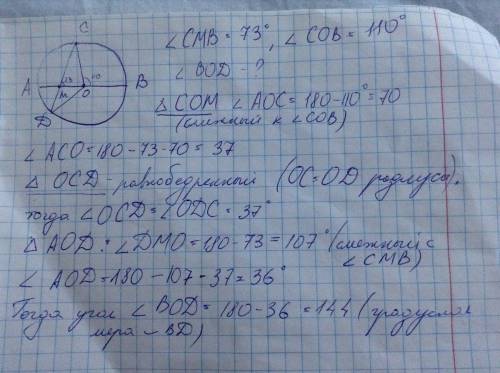 C
∠CMB = 73°, ∠COB = 110°
∠BOD - ?
A 73 110 B
M O
D
△ COM ∠AOC = 180-110° = 70
(смежный к ∠COB)
∠ACO = 180 - 73 - 70 = 37
△ OCD - равнобедренный (OC=OD радиусы).
тогда ∠OCD = ∠ODC = 37°
△ AOD: ∠DMO = 180 - 73 = 107° (смежный с
∠CMB)
∠AOD = 180 - 107 - 37 = 36°
Тогда угол ∠BOD = 180 - 36 = 144 (градусная
мера ◡ BD)